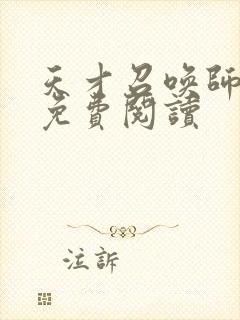 天才召唤師
免費閱讀
注訴